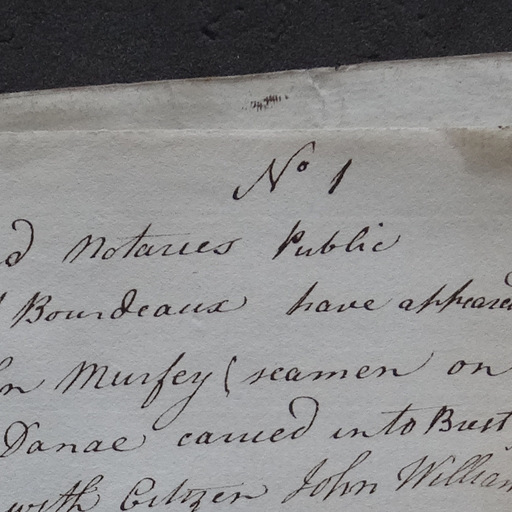 No 1
d Notaries Public
Bourdeaux have appeared
hn Murfey (seamen on
Danae carried into Brest
with Citizen John William